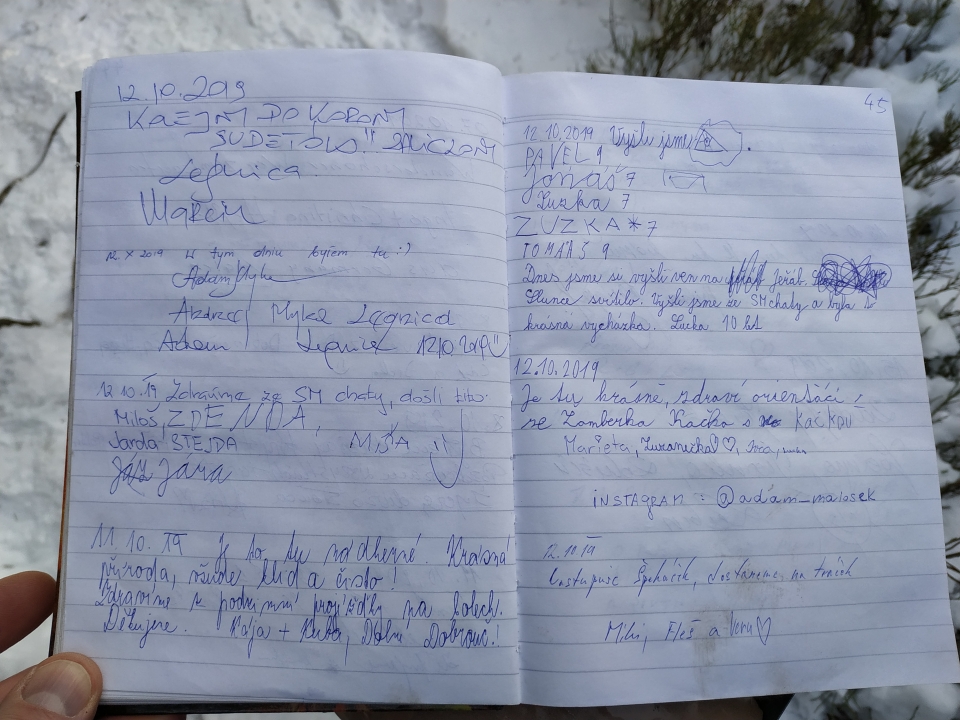 12.10.2019
DO KORONY
SUDETÓW"
Legnica
Marcin
12.X 2019 W tym dniu byłem tu :)
Adam Myka
Myka Legnica
Adam Legnica 12.10.2019
12.10.19 Zdravíme ze SM chaty, došli tito:
Miloš, ZDENDA,
Jarda STEJDA MÍŠA
Jára
11.10.19 Je to tu nádherné. Krásná
příroda, všude klid a čisto!
Zdravíme z podzimní projížďky na kolech.
Děkujeme. Kája + Kuba, Dolní Dobrouč!
45
12.10.2019 Vyšli jsme
PAVEL 9
Jonáš 7
Luzka 7
ZUZKA * 7
TOMÁŠ 9
Dnes jsme si vyšli ven na Jeřáb.
Slunce svítilo. Vyšli jsme ze SMchaty a byla
krásná vycházka. Lucka 10 let
12.10.2019
Je tu krásně, zdraví orienťáci
ze Žamberka Kačka s KAČKOU
Marieta, Zuzanečka ♡,
INSTAGRAM : @adam_malosek
12.10.19
dostaneme na traťích
a Veru ♡